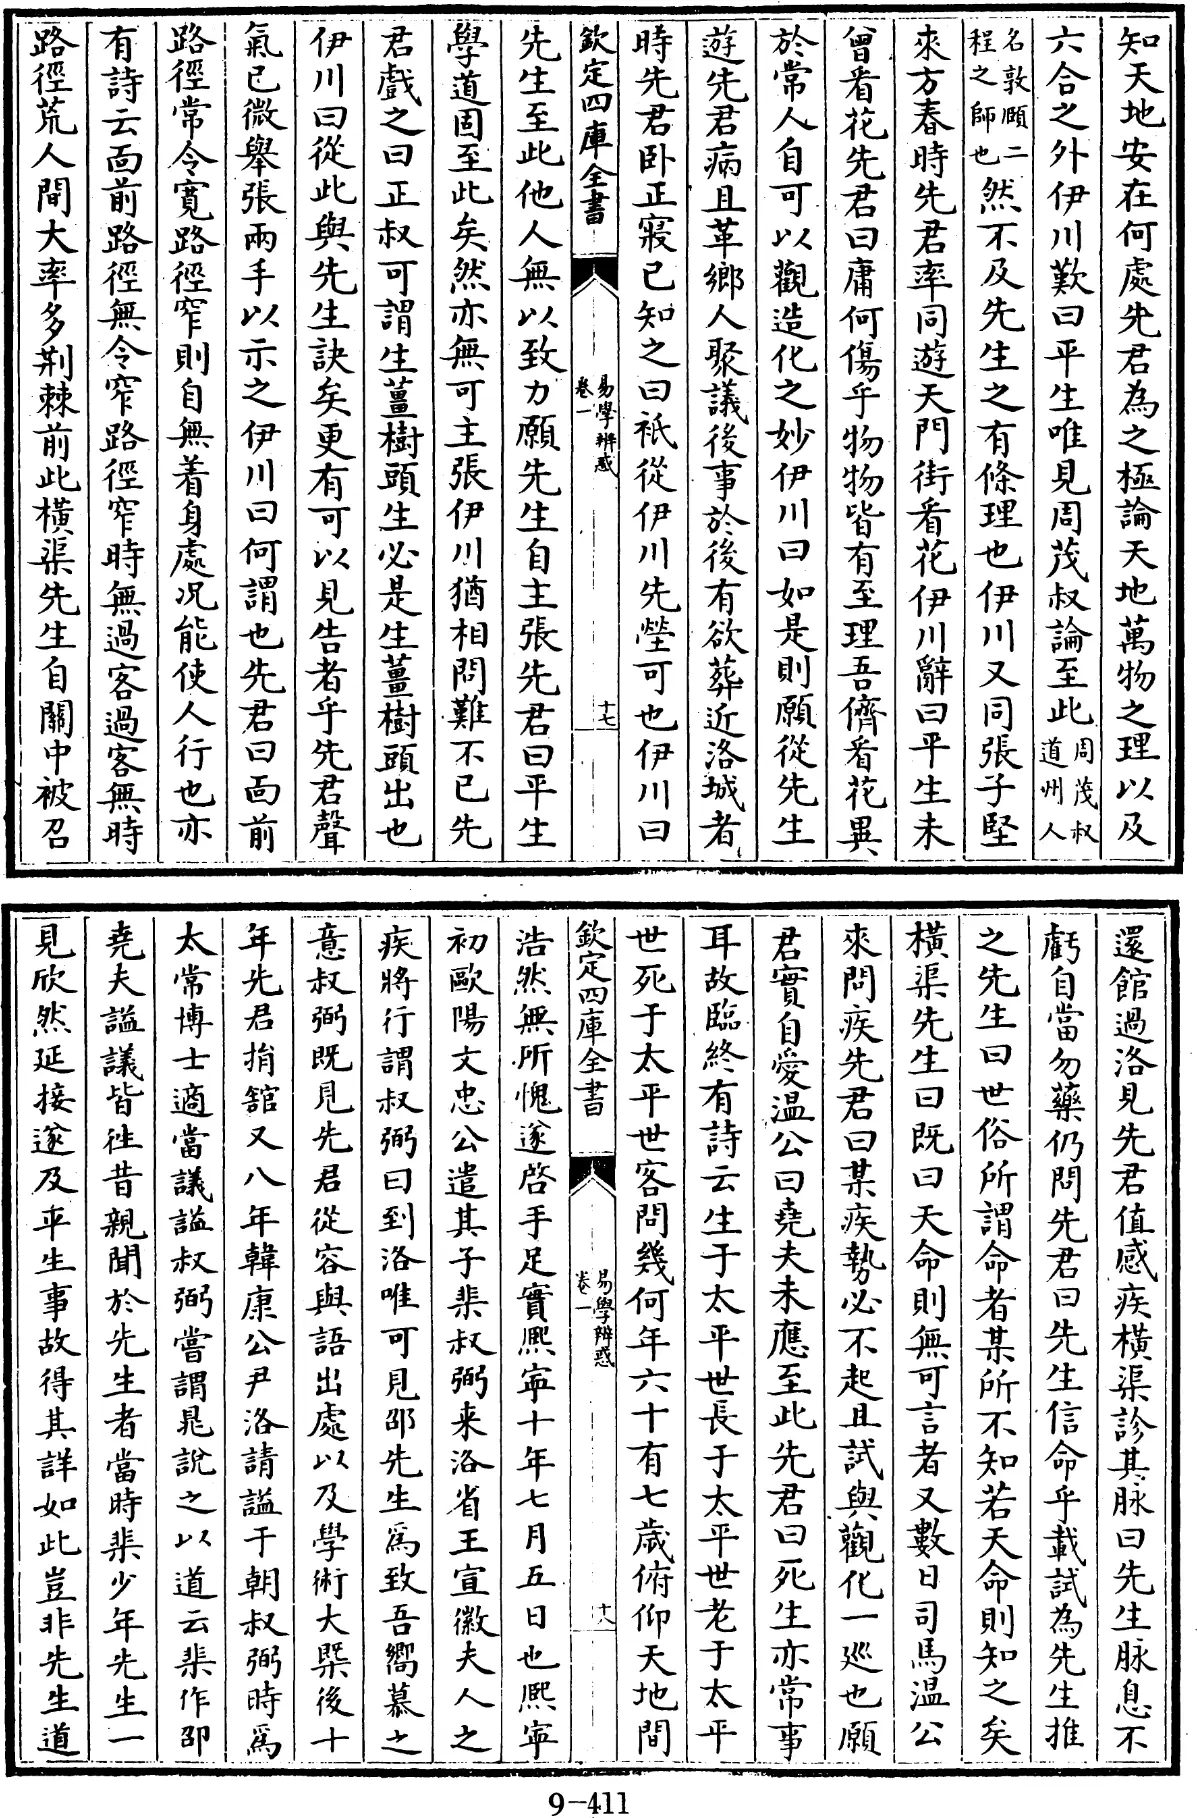 知天地安在何處先君為之極論天地萬物之理以及
六合之外伊川歎曰平生唯見周茂叔論至此周茂叔道州人
名敦頤二程之師也然不及先生之有條理也伊川又同張子堅
來方春時先君率同遊天門街看花伊川辭曰平生未
曾看花先君曰庸何傷乎物物皆有至理吾儕看花異
於常人自可以觀造化之妙伊川曰如是則願從先生
遊先君病且革鄉人聚議後事於後有欲葬近洛城者
時先君卧正寢已知之曰祇從伊川先塋可也伊川曰
欽定四庫全書
易學辨惑
卷一
十七
先生至此他人無以致力願先生自主張先君曰平生
學道固至此矣然亦無可主張伊川猶相問難不已先
君戲之曰正叔可謂生薑樹頭生必是生薑樹頭出也
伊川曰從此與先生訣矣更有可以見告者乎先君聲
氣已微舉張兩手以示之伊川曰何謂也先君曰面前
路徑常令寛路徑窄則自無着身處况能使人行也亦
有詩云面前路徑無令窄路徑窄時無過客過客無時
路徑荒人間大率多荆棘前此橫渠先生自關中被召
還館過洛見先君值感疾橫渠診其脉曰先生脉息不
虧自當勿藥仍問先君曰先生信命乎載試為先生推
之先生曰世俗所謂命者某所不知若天命則知之矣
橫渠先生曰既曰天命則無可言者又數日司馬溫公
來問疾先君曰某疾勢必不起且試與觀化一廵也願
君實自愛溫公曰堯夫未應至此先君曰死生亦常事
耳故臨終有詩云生于太平世長于太平世老于太平
世死于太平世客問幾何年六十有七歲俯仰天地間
欽定四庫全書
易學辨惑
卷一
十八
浩然無所愧遂啓手足實熈寧十年七月五日也熈寧
初歐陽文忠公遣其子棐叔弼来洛省王宣徽夫人之
疾將行謂叔弼曰到洛唯可見邵先生爲致吾嚮慕之
意叔弼既見先君從容與語出處以及學術大槩後十
年先君捐舘又八年韓康公尹洛請謚于朝叔弼時爲
太常博士適當議謚叔弼嘗謂晁說之以道云棐作邵
堯夫謚議皆徃昔親聞於先生者當時棐少年先生一
見欣然延接遂及平生事故得其詳如此豈非先生道
9-411